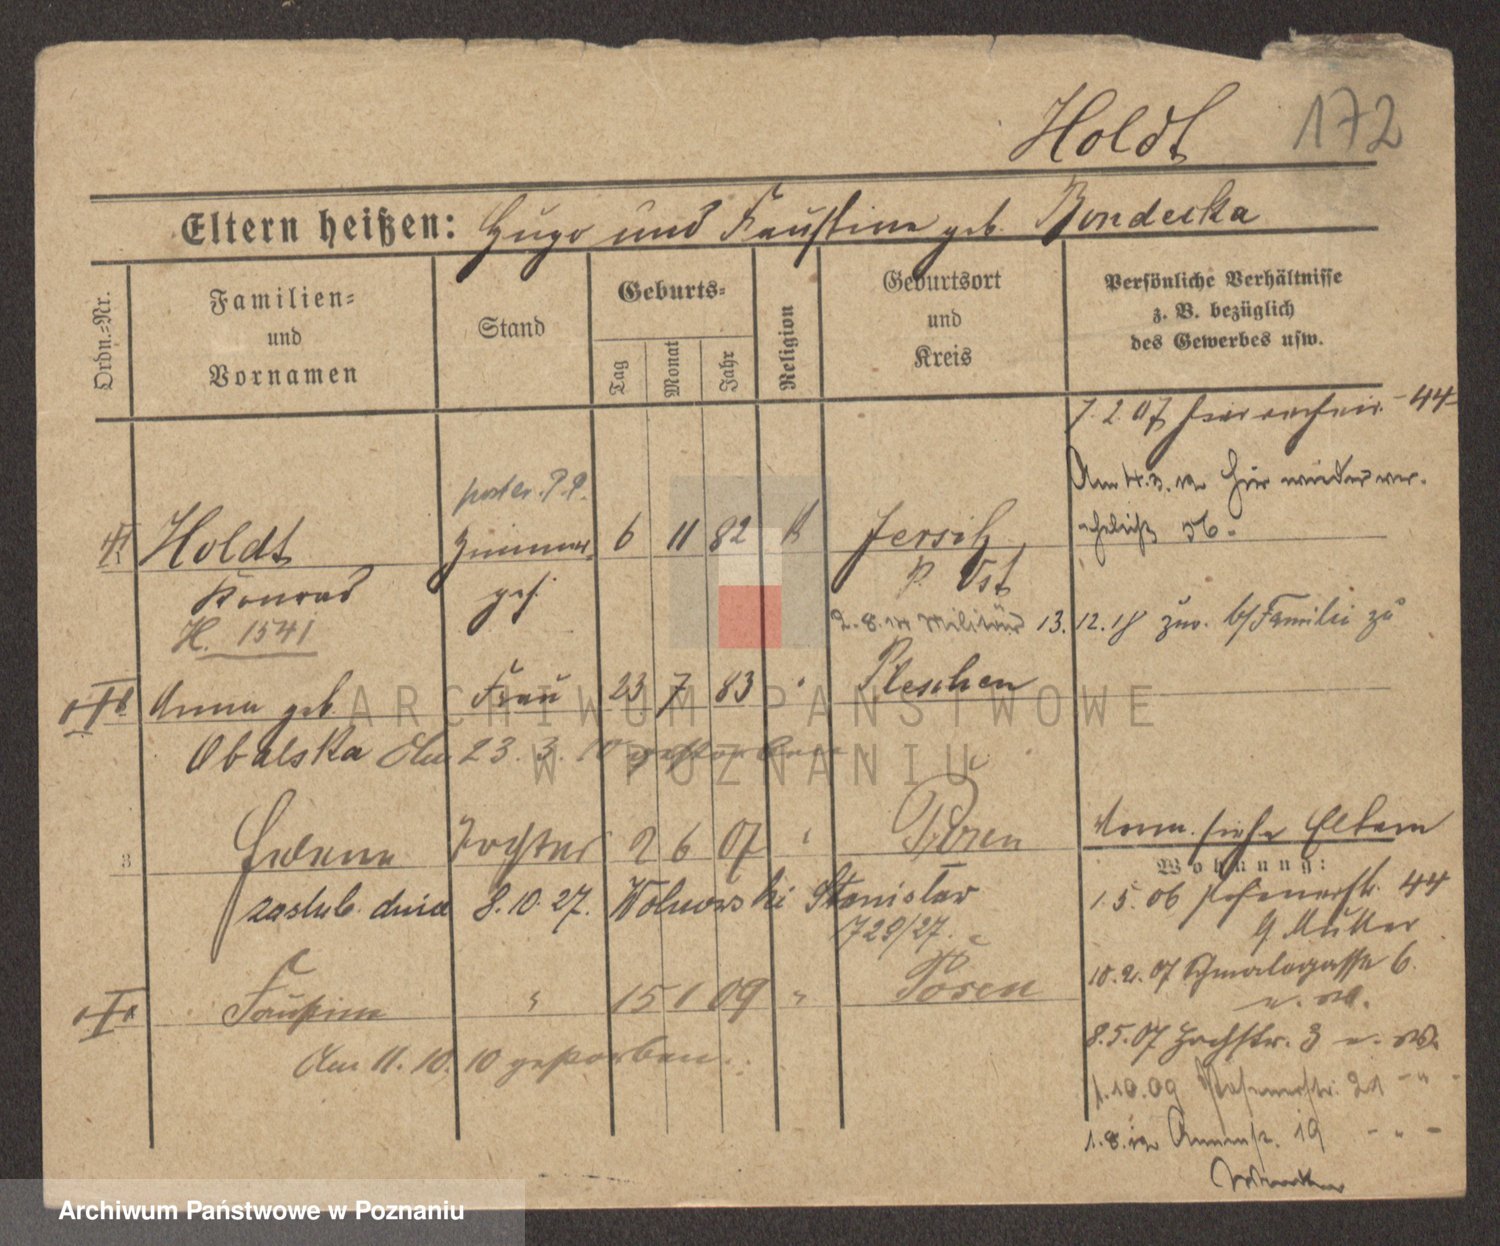 Holdt 172
Eltern heißen: Hugo und Faustine geb. Bondecka
Ordn.-Nr.
Familien-
und
Vornamen
Stand
Geburts-
Tag
Monat
Jahr
Religion
Geburtsort
und
Kreis
Persönliche Verhältnisse
z. B. bezüglich
des Gewerbes usw.
7. 2. 07 44
Am 4. 3. hier wieder ver-
ehelicht 56.
Holdt Zimmer- 6 11 82 k Jersih
Konrad ges. P. Ost
H. 1541
2. 8. 14 Militär 13. 12. 18 zur. b/Familie zu
Anna geb. Frau 23 7 83 " Pleschen
Obalska Am 23. 3. 10 gestorben
3 Tochter 2 6 07 " Posen
Anm. siehe Eltern
Wohnung:
zaślub. dnia 8. 10. 27. Wolnorski Stanisław
729/27.
1. 5. 06 Posenerstr. 44
Mutter
10. 2. 07 Schmalegasse 6.
Faustine " 15 1 09 " Posen
Am 11. 10. 10 gestorben.
8. 5. 07 Hochstr. 3
1. 10. 09 Posenerstr. 21 - " -
1. 8. Annenstr. 19 - " -
ARCHIWUM PAŃSTWOWE
W POZNANIU
Archiwum Państwowe w Poznaniu